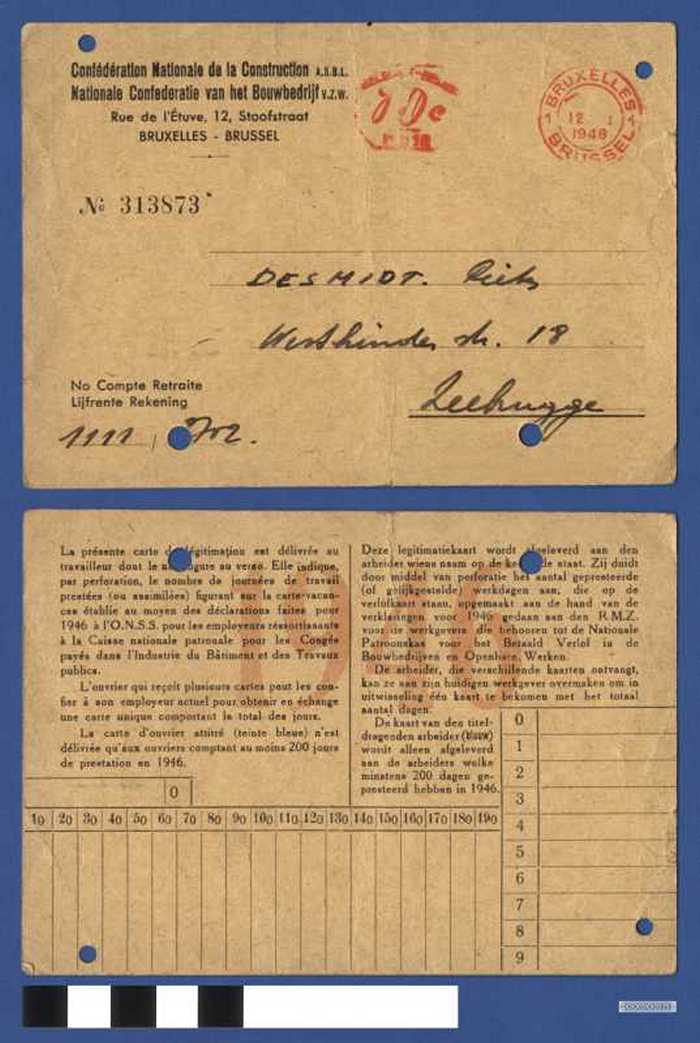 Confédération Nationale de la Construction A.S.B.L.
Nationale Confederatie van het Bouwbedrijf v.z.w.
Rue de l'Étuve, 12, Stoofstraat
BRUXELLES - BRUSSEL
BRUXELLES
1 12 I 1
1948
BRUSSEL
№ 313873
DESMIDT.
18
Zeebrugge
No Compte Retraite
Lijfrente Rekening
1111
La présente carte de légitimation est délivrée au
travailleur dont le nom figure au verso. Elle indique,
par perforation, le nombre de journées de travail
prestées (ou assimilées) figurant sur la carte-vacan-
ces établie au moyen des déclarations faites pour
1946 à l'O.N.S.S. pour les employeurs ressortissants
à la Caisse nationale patronale pour les Congés
payés dans l'Industrie du Bâtiment et des Travaux
publics.
L'ouvrier qui reçoit plusieurs cartes peut les con-
fier à son employeur actuel pour obtenir en échange
une carte unique comportant le total des jours.
La carte d'ouvrier attitré (teinte bleue) n'est
délivrée qu'aux ouvriers comptant au moins 200 jours
de prestation en 1946.
Deze legitimatiekaart wordt afgeleverd aan den
arbeider wiens naam op de keerzijde staat. Zij duidt
door middel van perforatie het aantal gepresteerde
(of gelijkgestelde) werkdagen aan, die op de
verlofkaart staan, opgemaakt aan de hand van de
verklaringen voor 1946 gedaan aan den R.M.Z.
voor de werkgevers die behooren tot de Nationale
Patroonskas voor het Betaald Verlof in de
Bouwbedrijven en Openbare Werken.
De arbeider, die verschillende kaarten ontvangt,
kan ze aan zijn huidigen werkgever overmaken om in
uitwisseling één kaart te bekomen met het totaal
aantal dagen.
De kaart van den titel-
dragenden arbeider (blauw)
wordt alleen afgeleverd
aan de arbeiders welke
minstens 200 dagen ge-
presteerd hebben in 1946.
0
10 20 30 40 50 60 70 80 90 100 110 120 130 140 150 160 170 180 190
0
1
2
3
4
5
6
7
8
9